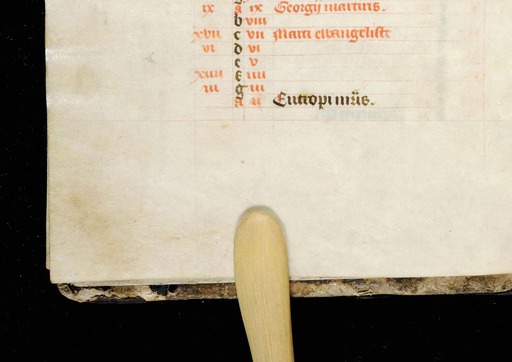 ix A ix Georgij martiris.
b viii
xvii c vii Marci ewangeliste
vi d vi
e v
xiiii f iiii
iii g iii
A ii Eutropi mris.